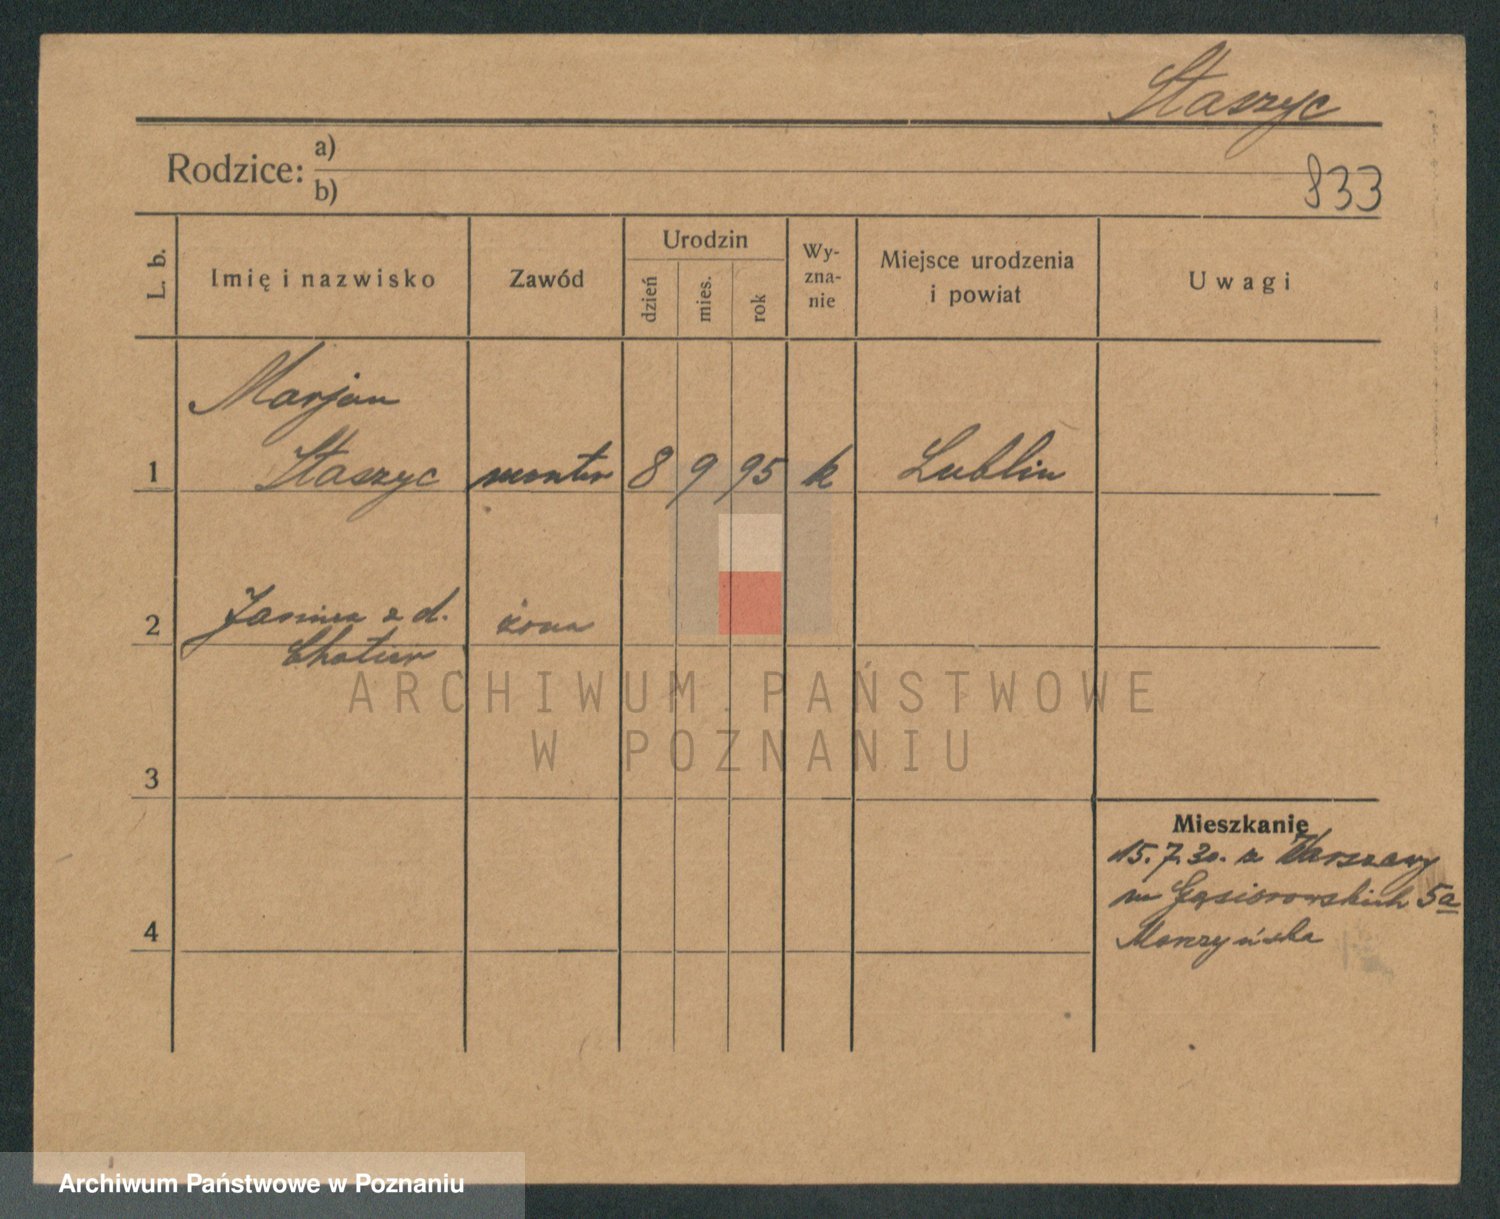 Staszyc
Rodzice: a)
b)
833
L. b.
Imię i nazwisko
Zawód
Urodzin
dzień
mies.
rok
Wy-
zna-
nie
Miejsce urodzenia
i powiat
Uwagi
Marjan
1 Staszyc monter 8 9 95 k Lublin
2 Janina z d. żona
3
4
Mieszkanie
15.7.30. z Warszawy
Gąsiorowskich 5a
ARCHIWUM PAŃSTWOWE
W POZNANIU
Archiwum Państwowe w Poznaniu